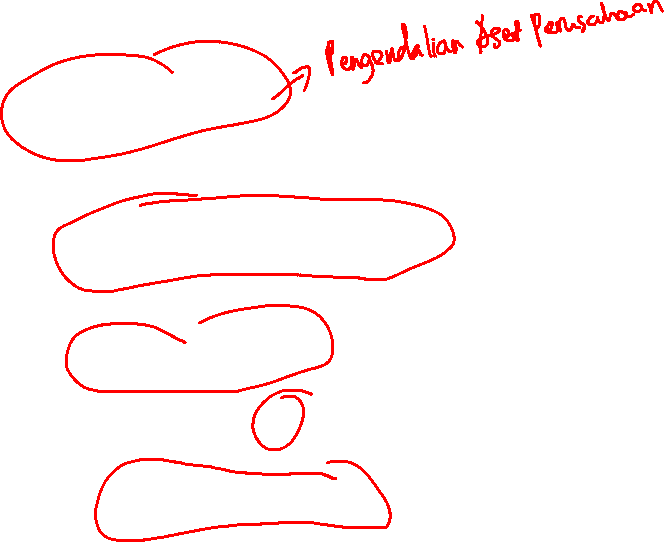 Pengendalian Aset Perusahaan